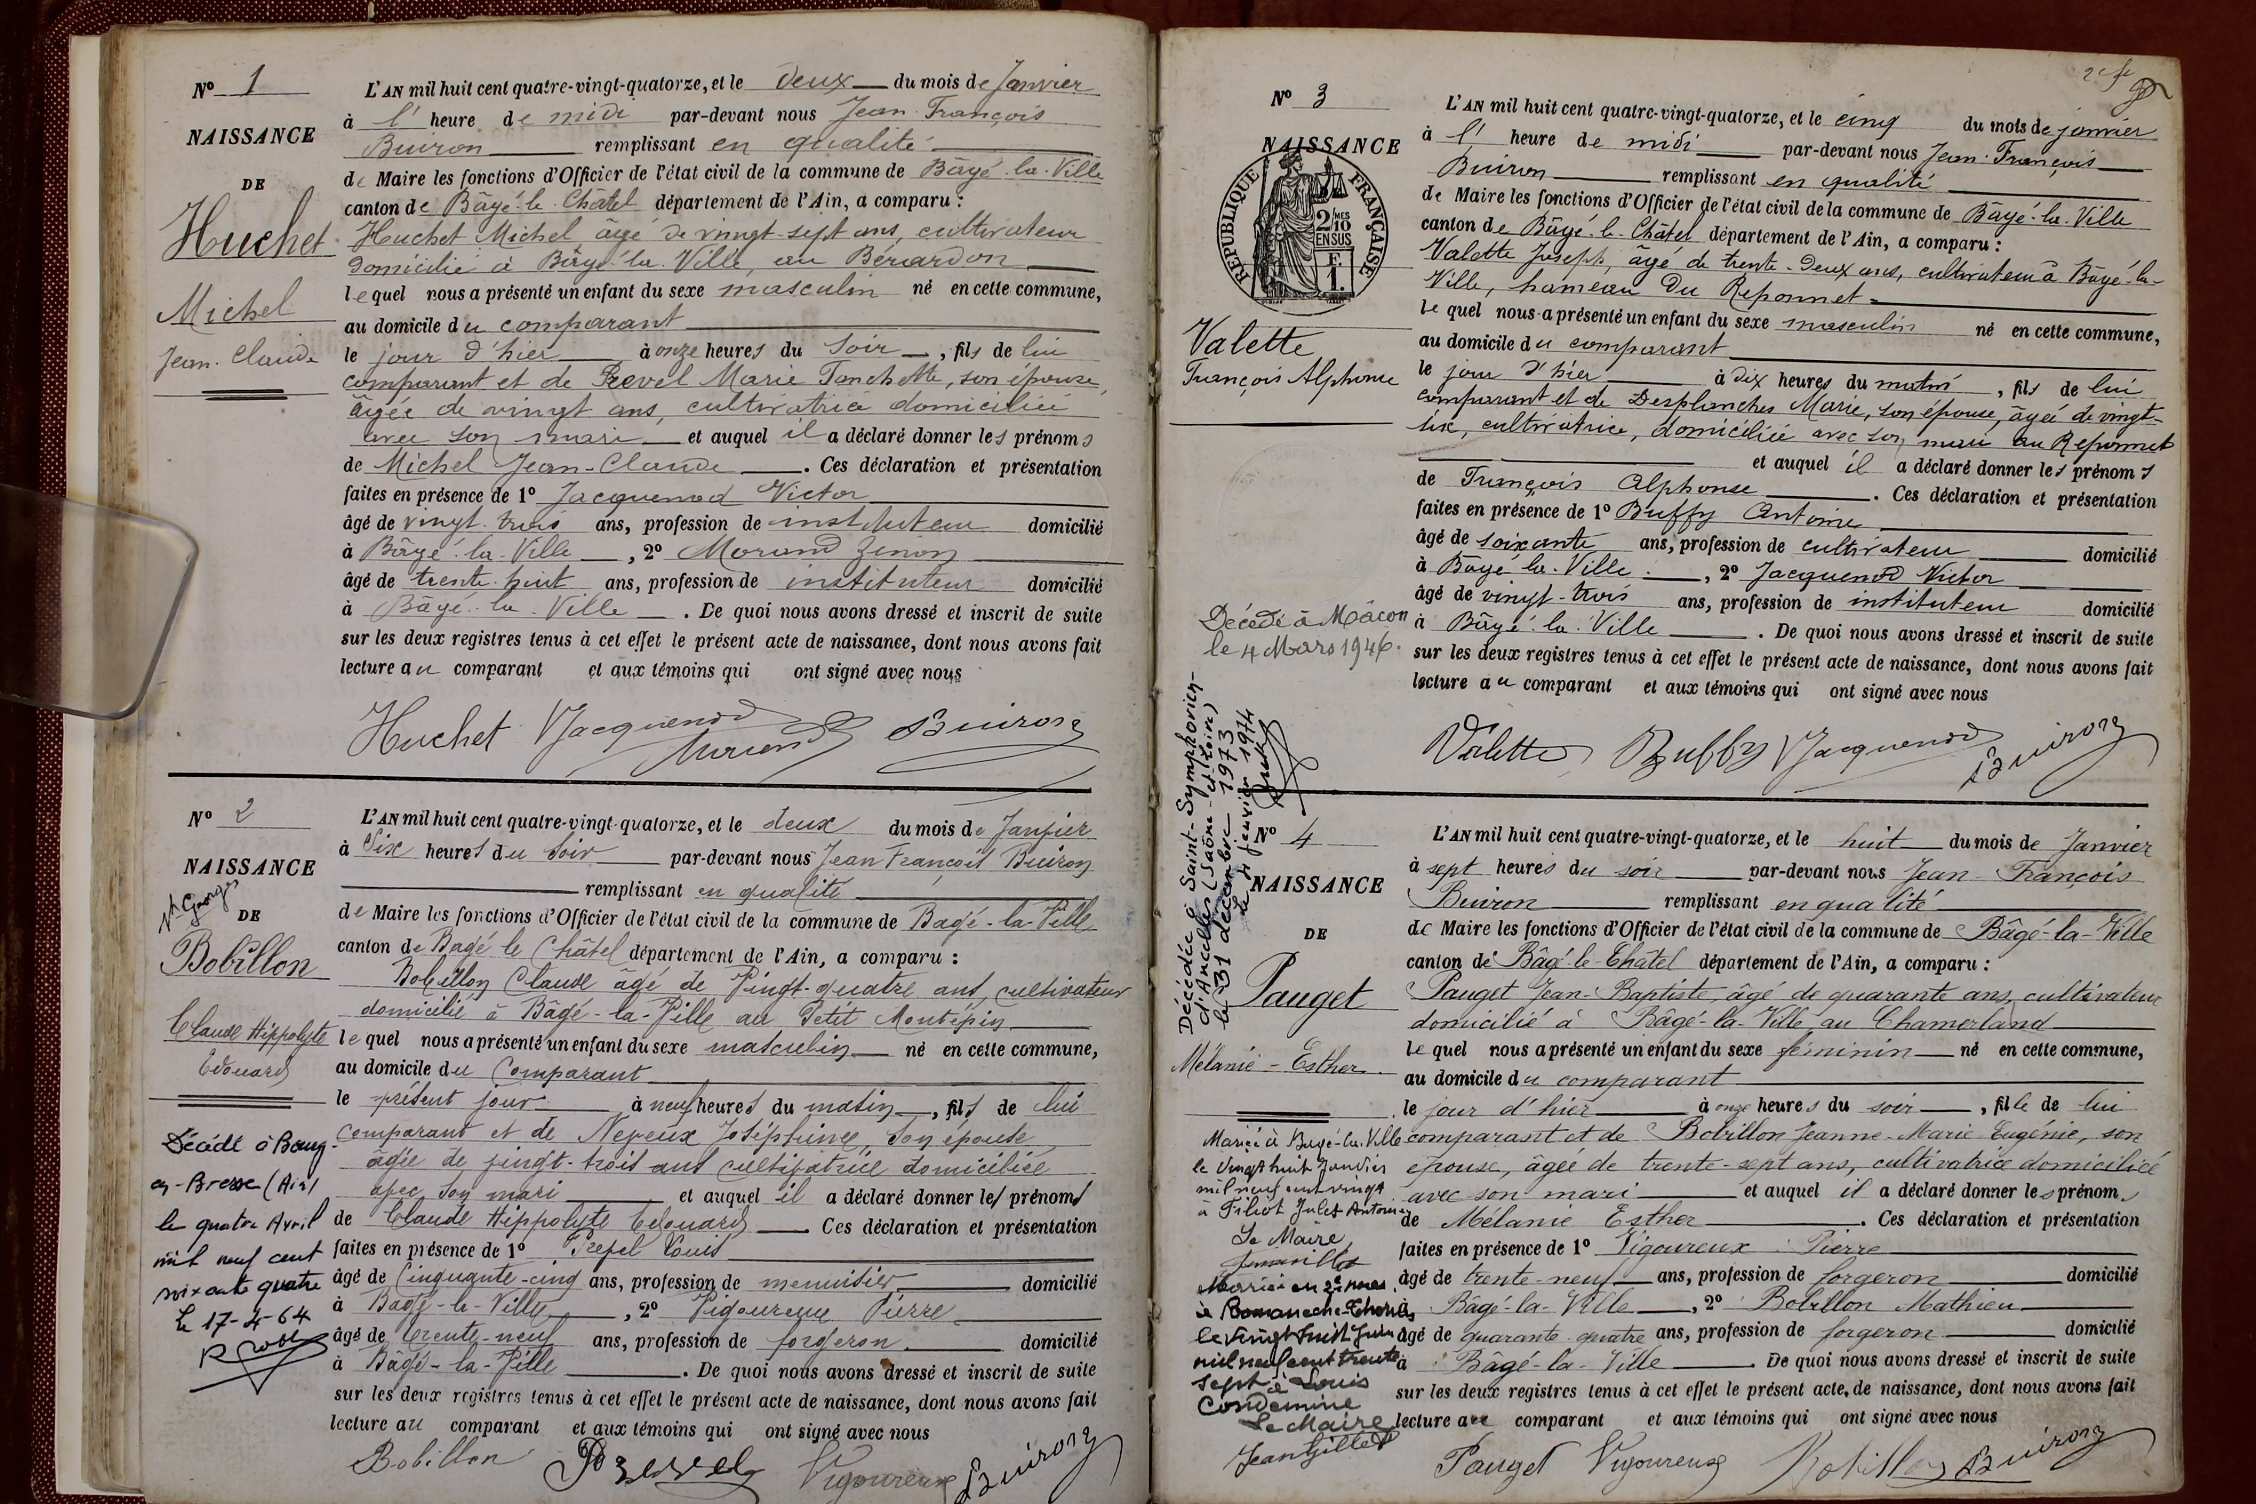 N° 1
NAISSANCE
DE
Huchet
Michel
Jean-Claude
L'AN mil huit cent quatre-vingt-quatorze, et le deux du mois de Janvier
à 1' heure de midi par-devant nous Jean François
Buiron remplissant en qualité
de Maire les fonctions d'Officier de l'état civil de la commune de Bâgé-la-Ville
canton de Bâgé-le-Châtel département de l'Ain, a comparu :
Huchet Michel âgé de vingt-sept ans, cultivateur
domicilié à Bâgé-la-Ville, au Bérardon
lequel nous a présenté un enfant du sexe masculin né en cette commune,
au domicile du comparant
le jour d'hier à onze heures du soir, fils de lui
comparant et de Prevel Marie Fanchette, son épouse,
âgée de vingt ans, cultivatrice domiciliée
avec son mari et auquel il a déclaré donner les prénoms
de Michel Jean-Claude. Ces déclaration et présentation
faites en présence de 1° Jacquenod Victor
âgé de vingt-trois ans, profession de instituteur domicilié
à Bâgé-la-Ville, 2° Morand Zénon
âgé de trente-huit ans, profession de instituteur domicilié
à Bâgé-la-Ville. De quoi nous avons dressé et inscrit de suite
sur les deux registres tenus à cet effet le présent acte de naissance, dont nous avons fait
lecture au comparant et aux témoins qui ont signé avec nous
Huchet VJacquenod Morand Buiron
N° 2
NAISSANCE
DE
Bobillon
Claude Hippolyte
Edouard
Décédé à Bourg-
en-Bresse (Ain)
le quatre Avril
mil neuf cent
soixante quatre
le 17-4-64
L'AN mil huit cent quatre-vingt-quatorze, et le deux du mois de Janvier
à six heures du soir par-devant nous Jean François Buiron
remplissant en qualité
de Maire les fonctions d'Officier de l'état civil de la commune de Bagé-la-Ville
canton de Bagé le Châtel département de l'Ain, a comparu :
Bobillon Claude âgé de vingt-quatre ans, cultivateur
domicilié à Bâgé-la-Ville au Petit Montépin
lequel nous a présenté un enfant du sexe masculin né en cette commune,
au domicile du Comparant
le présent jour à neuf heures du matin, fils de lui
comparant et de Neveux Joséphine, son épouse
âgée de vingt-trois ans cultivatrice domiciliée
avec son mari et auquel il a déclaré donner les prénoms
de Claude Hippolyte Edouard Ces déclaration et présentation
faites en présence de 1° Prevel Louis
âgé de Cinquante-cinq ans, profession de menuisier domicilié
à Bagé-la-Ville, 2° Vigoureux Pierre
âgé de trente-neuf ans, profession de forgeron domicilié
à Bâgé-la-Ville. De quoi nous avons dressé et inscrit de suite
sur les deux registres tenus à cet effet le présent acte de naissance, dont nous avons fait
lecture au comparant et aux témoins qui ont signé avec nous
Bobillon Prevel Vigoureux Buiron
N° 3
NAISSANCE
RÉPUBLIQUE FRANÇAISE
2/MES
10
EN SUS
F.
1.
Valette
François Alphonse
Décédé à Mâcon
le 4 Mars 1946.
L'AN mil huit cent quatre-vingt-quatorze, et le cinq du mois de janvier
à 1' heure de midi par-devant nous Jean-François
Buiron remplissant en qualité
de Maire les fonctions d'Officier de l'état civil de la commune de Bâgé-la-Ville
canton de Bâgé-le-Châtel département de l'Ain, a comparu :
Valette Joseph, âgé de trente-deux ans, cultivateur à Bâgé-la-
Ville, hameau du Reponnet
lequel nous a présenté un enfant du sexe masculin né en cette commune,
au domicile du comparant
le jour d'hier à dix heures du matin, fils de lui
comparant et de Desplanches Marie, son épouse, âgée de vingt-
six, cultivatrice, domiciliée avec son mari au Reponnet
et auquel il a déclaré donner les prénoms
de François Alphonse. Ces déclaration et présentation
faites en présence de 1° Buffy Antoine
âgé de soixante ans, profession de cultivateur domicilié
à Bâgé-la-Ville, 2° Jacquenod Victor
âgé de vingt-trois ans, profession de instituteur domicilié
à Bâgé-la-Ville. De quoi nous avons dressé et inscrit de suite
sur les deux registres tenus à cet effet le présent acte de naissance, dont nous avons fait
lecture au comparant et aux témoins qui ont signé avec nous
Valette Buffy VJacquenod Buiron
Décédée à Saint-Symphorien-
d'Ancelles (Saône-et-Loire)
le 31 décembre 1973
Le 4 janvier 1974
N° 4
NAISSANCE
DE
Pauget
Mélanie-Esther
Mariée à Bagé-la-Ville
le vingt huit Janvier
mil neuf cent vingt
à Filiot Jules Antonin
Le Maire,
Mariée en 2e noces
à Romanèche-Thorins
le vingt huit Juin
mil neuf cent trente
sept à Louis
Condemine
Le Maire
L'AN mil huit cent quatre-vingt-quatorze, et le huit du mois de Janvier
à sept heures du soir par-devant nous Jean-François
Buiron remplissant en qualité
de Maire les fonctions d'Officier de l'état civil de la commune de Bâgé-la-Ville
canton de Bâgé-le-Châtel département de l'Ain, a comparu :
Pauget Jean-Baptiste, âgé de quarante ans, cultivateur
domicilié à Bâgé-la-Ville au Chamerland
lequel nous a présenté un enfant du sexe féminin né en cette commune,
au domicile du comparant
le jour d'hier à onze heures du soir, fille de lui
comparant et de Bobillon Jeanne-Marie Eugénie, son
épouse, âgée de trente-sept ans, cultivatrice domiciliée
avec son mari et auquel il a déclaré donner les prénoms
de Mélanie Esther. Ces déclaration et présentation
faites en présence de 1° Vigoureux Pierre
âgé de trente-neuf ans, profession de forgeron domicilié
à Bâgé-la-Ville, 2° Bobillon Mathieu
âgé de quarante-quatre ans, profession de forgeron domicilié
à Bâgé-la-Ville. De quoi nous avons dressé et inscrit de suite
sur les deux registres tenus à cet effet le présent acte de naissance, dont nous avons fait
lecture au comparant et aux témoins qui ont signé avec nous
Pauget Vigoureux Bobillon Buiron